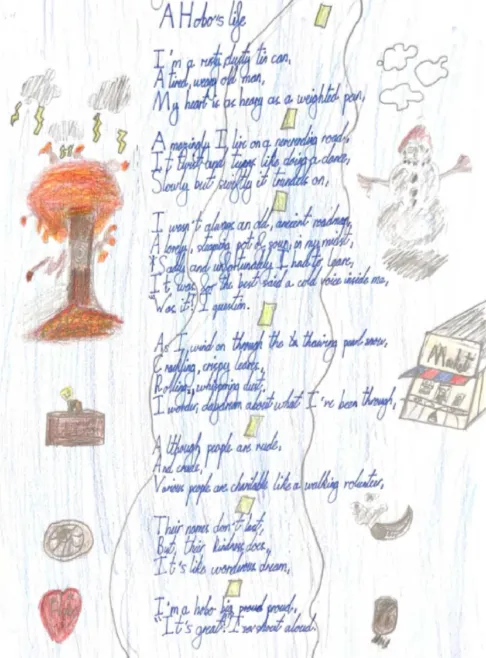 A Hobo's life
I'm a rusti, dusty tin can,
A tired, weary old man,
My heart is as heavy as a weighted pan,
Amazingly I live on a neverending road,
It twist and turns like doing a dance,
Slowly but swiftly it trundels on,
I wasn't always an old, ancient roadman,
A lovely, steaming pot of soup, in my midst,
Sadly and unfortunately I had to leave,
It was for the best said a cold voice inside me,
"Was it? I question.
As I wind on through the
Crackling, crispy leaves,
Rolling, whispering dust,
I wonder, daydream about what I've been through,
Although people are rude,
And cruel,
Various people are charitable like a walking volunteer,
Their names don't last,
But, their kindness does,
It's like wonderous dream,
I'm a hobo big proud proud,
"It's great! I
aloud.
Market